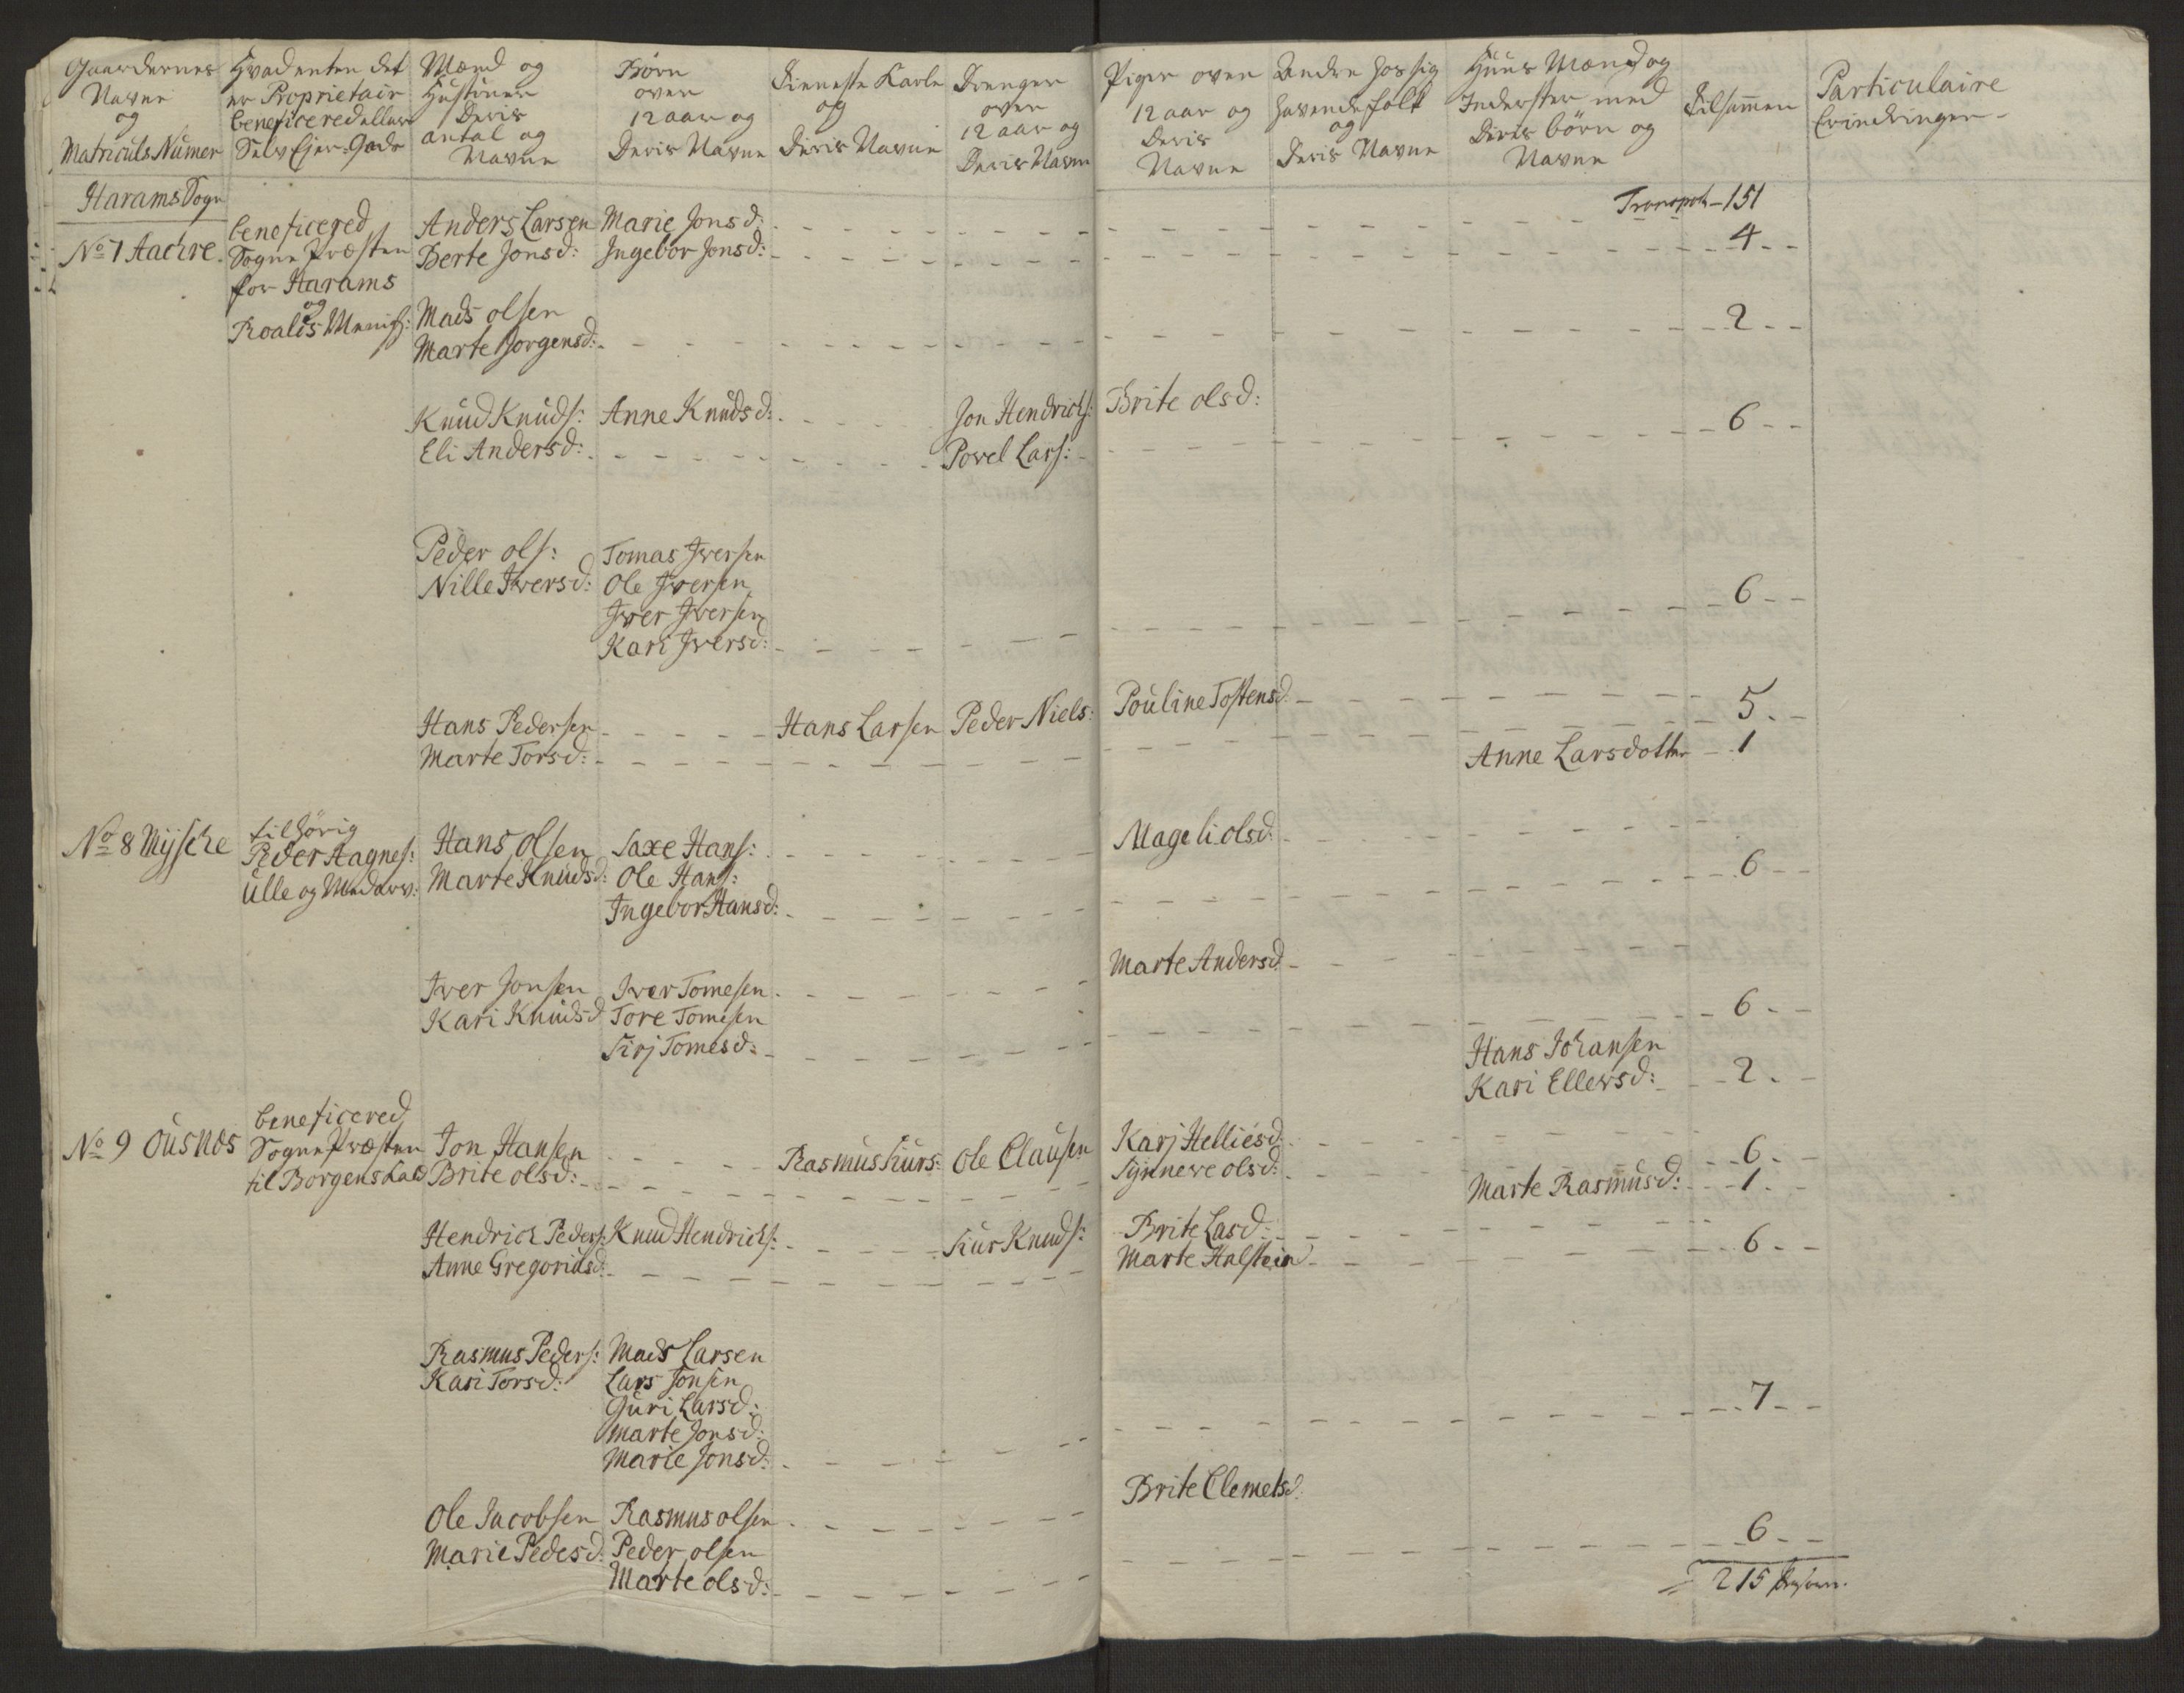 Gaardernes Navne og Matriculs Numer
Hvad enten det er Proprietair beneficered eller Selv Ejer-Gods
Mænd og Hustruer Deris antal og Navne
Børn over 12 aar og Deris Navne
Tieneste Karle og Deris Navne
Drenger over 12 aar og Deris Navne
Piger over 12 aar og Deris Navne
Andre hos sig havende folk og Deris Navne
Huus Mænd og Inderster med Deris børn og Navne
Tilsamen
Particulaire Erindringer
Harams Sogn
Transport 151
No 7 Aachre
beneficered
Sogne Præsten
for Harams
og
Roalds Menigh:
Anders Larsen Marie Jonsd:
Berte Jonsd: Ingebor Jonsd: 4
Mads olsen
Marte Jorgensd: 2
Knud Knuds: Anne Knudsd: Jon Hendrichs: Brite olsd:
Eli Andersd: Povel Lars: 6
Peder ols: Tomas Iversen
Nille Iversd: Ole Iversen
Iver Iversen
Kari Iversd: 6
Hans Pedersen Hans Larsen Peder Niels: Pouline Tostensd 5
Marte Torsd: Anne Larsdotter 1
No 8 Mijsche
tilhørig
Peder Aagnes:
Ulle og Medarv:
Hans olsen Saxe Hans: Mageli olsd:
Marte Knudsd: Ole Hans:
Ingebor Hansd: 6
Iver Jonsen Iver Tomesen Marte Andersd
Kari Knudsd Tore Tomesen
Sirj Tomesd: 6
Hans Johansen
Kari Ellersd: 2
No 9 Ousnes
beneficered
Sogne Præsten
til Borgens Kald
Jon Hansen Rasmus Siurs: Ole Clausen Karj Helliesd:
Brite olsd: Synneve olsd: 6
Marte Rasmusd: 1
Hendrich Peders: Knud Hendrichs: Siur Knuds: Brite Lasd:
Anne Gregoriusd: Marte Halsteind 6
Rasmus Peders: Mads Larsen
Kari Torsd: Lars Jonsen
Guri Larsd:
Marte Jonsd:
Marie Jonsd: 7
Ole Jacobsen Rasmus olsen Brite Clemetsd.
Marie Pedesd: Peder olsen
Marte olsd: 6
215